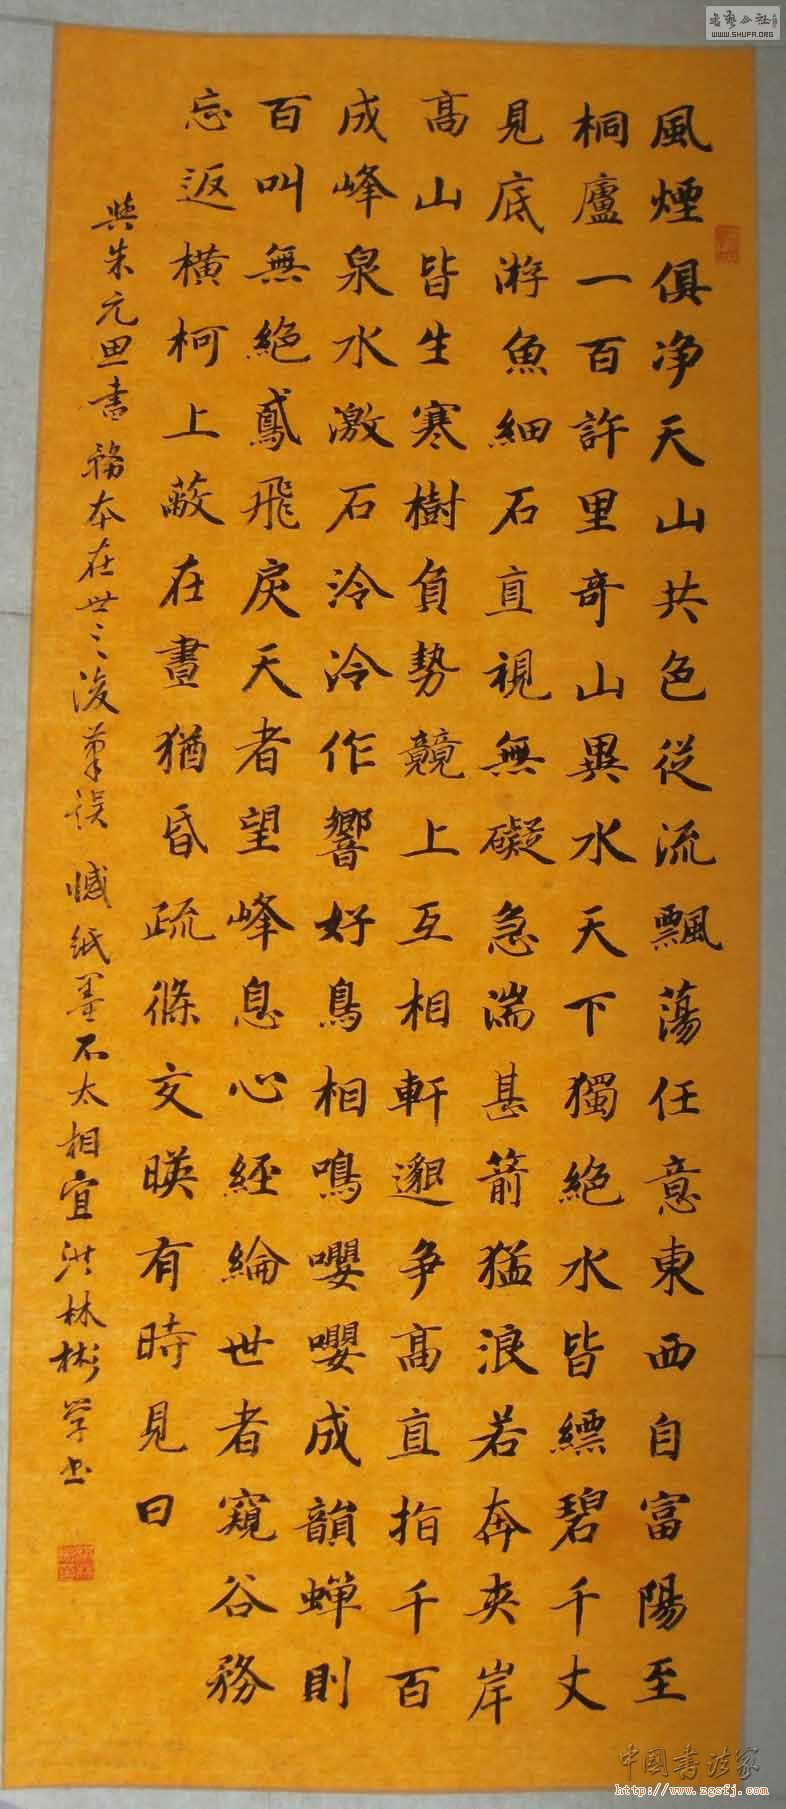 風煙俱净天山共色從流飄蕩任意東西自富陽至
桐廬一百許里奇山異水天下獨絕水皆縹碧千丈
見底游魚細石直視無礙急湍甚箭猛浪若奔夾岸
高山皆生寒樹負勢競上互相軒邈爭高直指千百
成峰泉水激石泠泠作響好鳥相鳴嚶嚶成韻蟬則
百叫無絕鳶飛戾天者望峰息心經綸世者窺谷務
忘返橫柯上蔽在晝猶昏疏條交暎有時見日
與朱元思書 務本在世之後筆誤 憾紙墨不太相宜 洪林彬学书
书艺公社
WWW.SHUFA.ORG
中国书法家
http://www.zgsfj.com